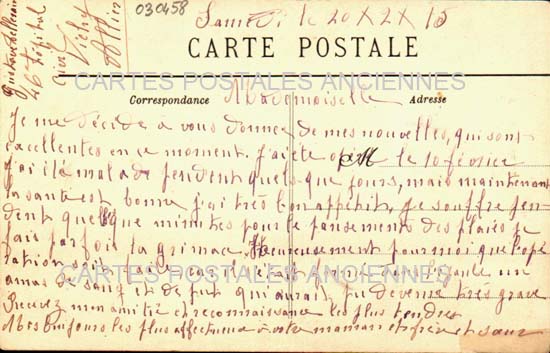 030458
Samedi le 20 X 2 X 15
CARTE POSTALE
CARTES POSTALES ANCIENNES
Correspondance Adresse
Mademoiselle
Je me décide a vous donner de mes nouvelles, qui sont
excellentes en ce moment. J'ai été opéré le 10 février
J'ai été malade pendent quelques jours, mais maintenant
la santé est bonne j'ai très bon appétit, je souffre pen-
dent quelque minutes pour le pansements des plaies je
fais parfois la grimace. Heureusement pour moi que l'opé
ration soit
CARTES POSTALES ANCIENNES
amas de sang et de pus qui aurait pu devenir très grave
Recevez mon amitié et reconnaissance les plus tendres
toujours les plus affectueux a votre maman et frère et sœur
46e
Hôpital
Vichy
Allier